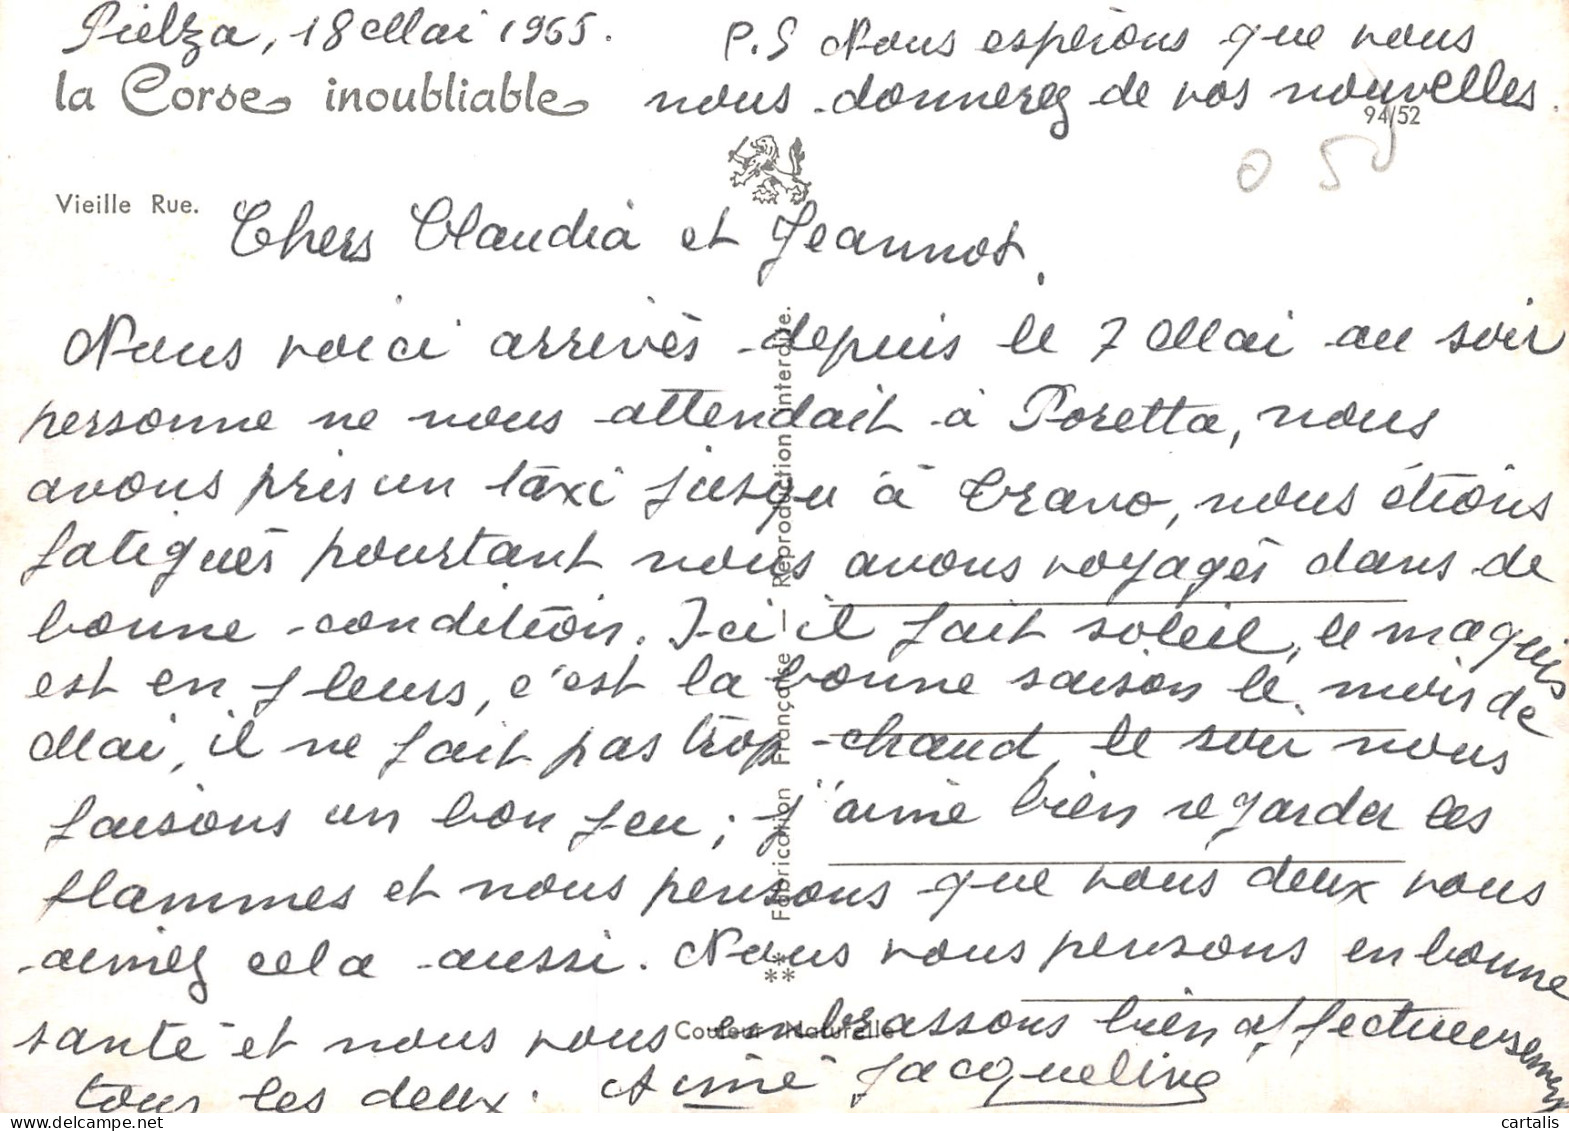 Pielza, 18 Mai 1965.
P.S Nous espérons que vous
la Corse inoubliable
nous donnerez de vos nouvelles.
94/52
0 5
Vieille Rue.
Chers Claudia et Jeannot,
Nous voici arrivés depuis le 7 Mai au soir
personne ne nous attendait à Poretta, nous
avons pris un taxi jusqu'à Cravo, nous étions
fatigués pourtant nous avons voyagés dans de
bonne condition. Ici il fait soleil, le maquis
est en fleurs, c'est la bonne saison le mois de
Mai, il ne fait pas trop chaud, le soir nous
faisons un bon feu; j'aime bien regarder les
flammes et nous pensons que vous deux vous
aimez cela aussi. Nous vous pensons en bonne
santé et nous vous embrassons bien affectueusement
tous les deux. Aimé Jacqueline
** Fabrication Française — Reproduction interdite.
Couleur Naturelle
cartalis